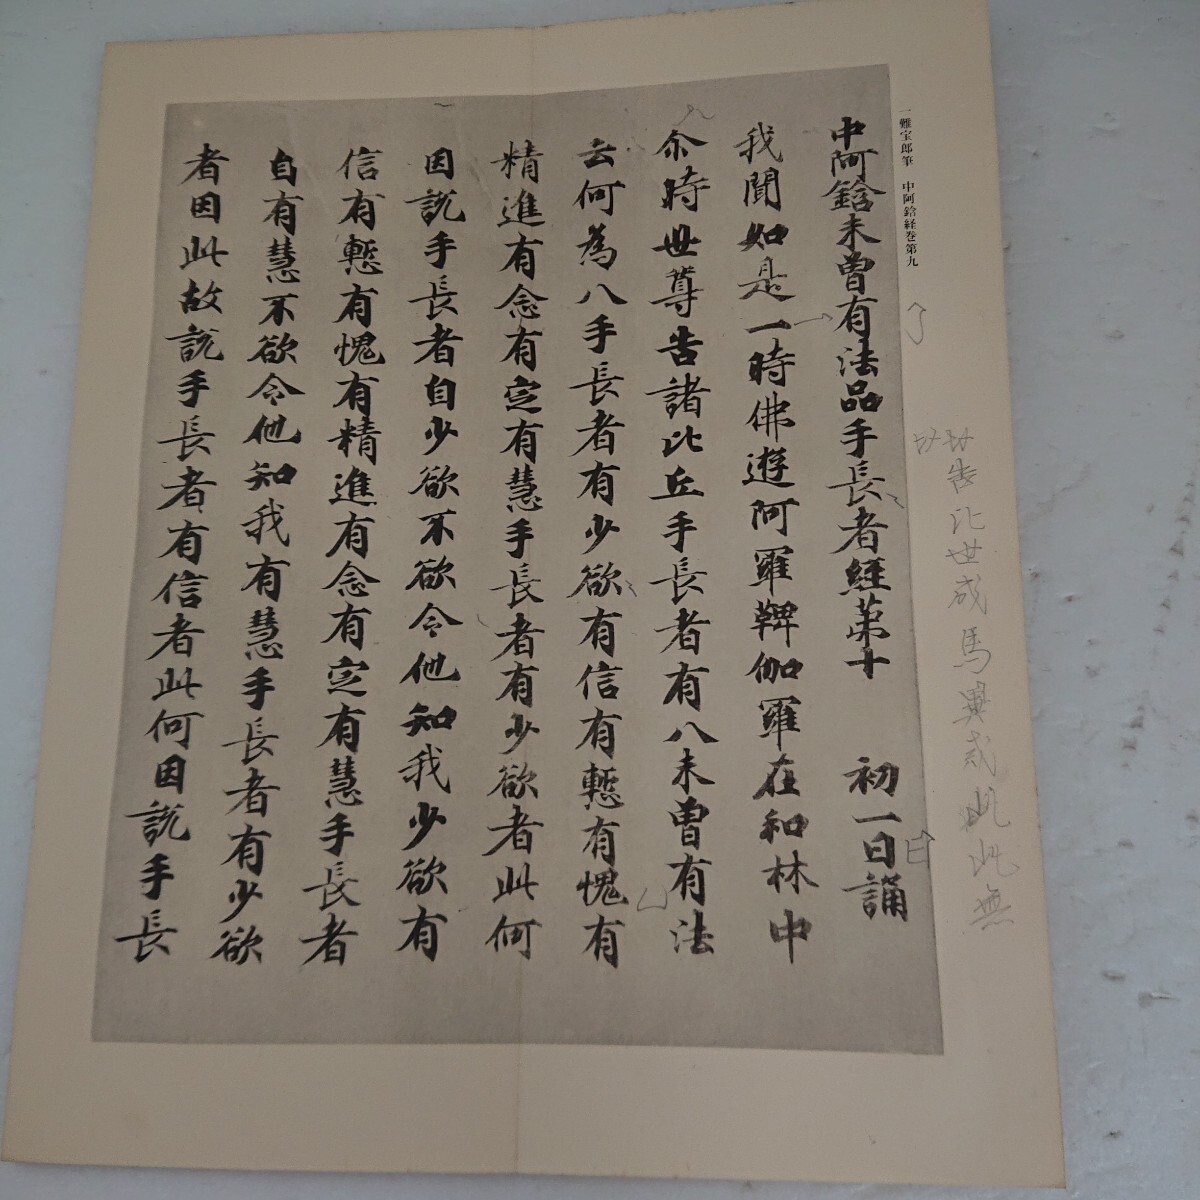 一難宝郎筆 中阿鋡経巻第九
中阿鋡未曽有法品手長者経第十 初一日誦
我聞如是一時佛遊阿羅鞞伽羅在和林中
尒時世尊告諸比丘手長者有八未曽有法
云何為八手長者有少欲有信有慙有愧有
精進有念有定有慧手長者有少欲者此何
因說手長者自少欲不欲令他知我少欲有
信有慙有愧有精進有念有定有慧手長者
自有慧不欲令他知我有慧手長者有少欲
者因此故說手長者有信者此何因說手長
告比世成馬 此此無